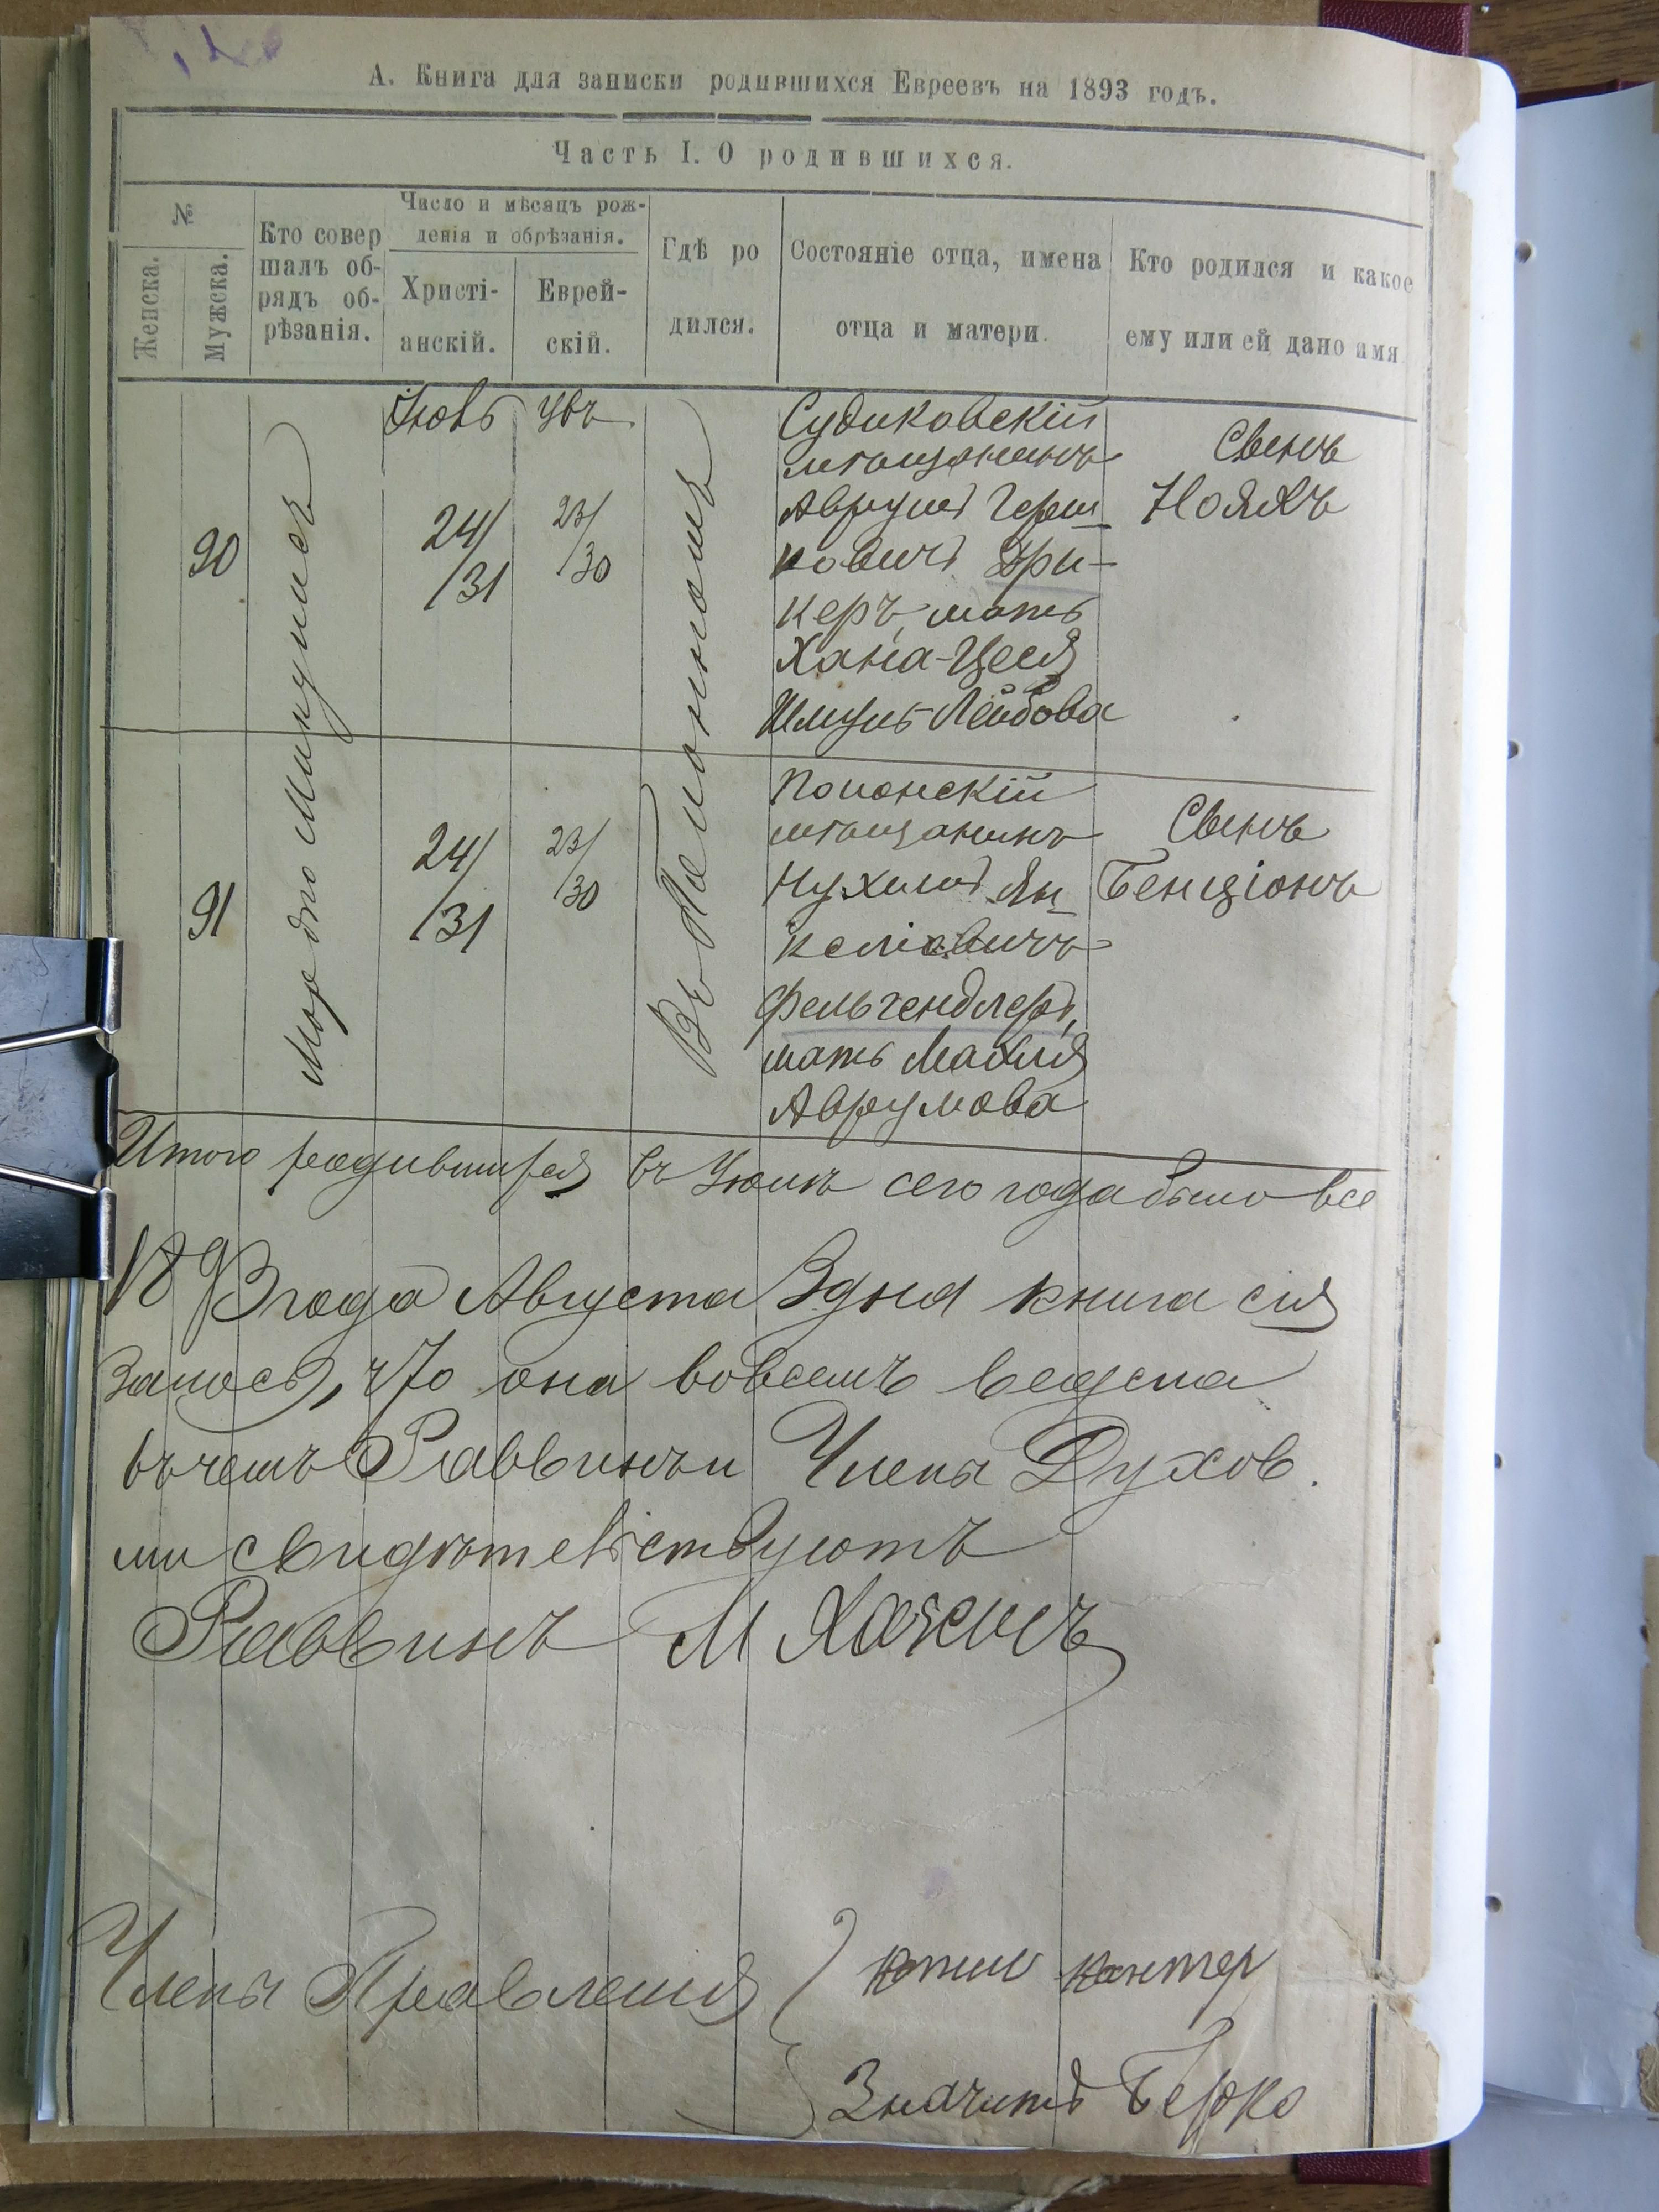 А. Книга для записки родившихся Евреевъ на 1893 годъ.
Часть I. О родившихся.
№
Женска.
Мужска.
Кто совер
шалъ об-
рядъ об-
рѣзанія.
Число и мѣсяцъ рож-
денія и обрѣзанія.
Христі-
анскій.
Еврей-
скій.
Гдѣ ро
дился.
Состояніе отца, имена
отца и матери.
Кто родился и какое
ему или ей дано имя
90
Мордко
24/
/31
23/
/30
Въ Полонномъ
Судиковскій
мѣщанинъ
Аврумъ Герш
ковичъ Дри-
керъ, мать
Хана-Цеся
Шмуль-Лейбова
Сынъ
Нояхъ
91
24/
/31
23/
/30
Полонскій
мѣщанинъ
Нухимъ Ян
келіовичъ
Фельгендлеръ,
мать Махля
Аврумова
Сынъ
Бенціонъ
Итого родившихся въ Іюлѣ сего года было все
1893 года Августа 3 дня книга сія
что она вовсемъ ведена
въ чемъ Раввинъ и Члены Духов.
ми свидѣтельствуютъ
Раввинъ М
Члены Правленія
кантер
Берко